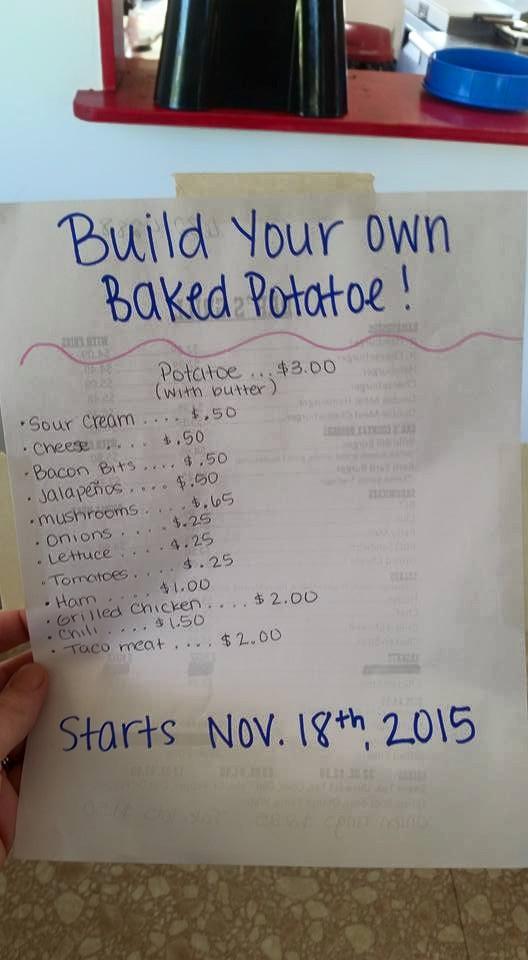 Build Your own
Baked Potatoe!
Potatoe ... $3.00
(with butter)
• Sour cream .... $.50
• Cheese .... $.50
• Bacon Bits .... $.50
• Jalapeños .... $.50
• mushrooms .... $.65
• Onions .... $.25
• Lettuce .... $.25
• Tomatoes .... $.25
• Ham .... $1.00
• Grilled Chicken .... $2.00
• Chili .... $1.50
• Taco meat .... $2.00
Starts Nov. 18th, 2015